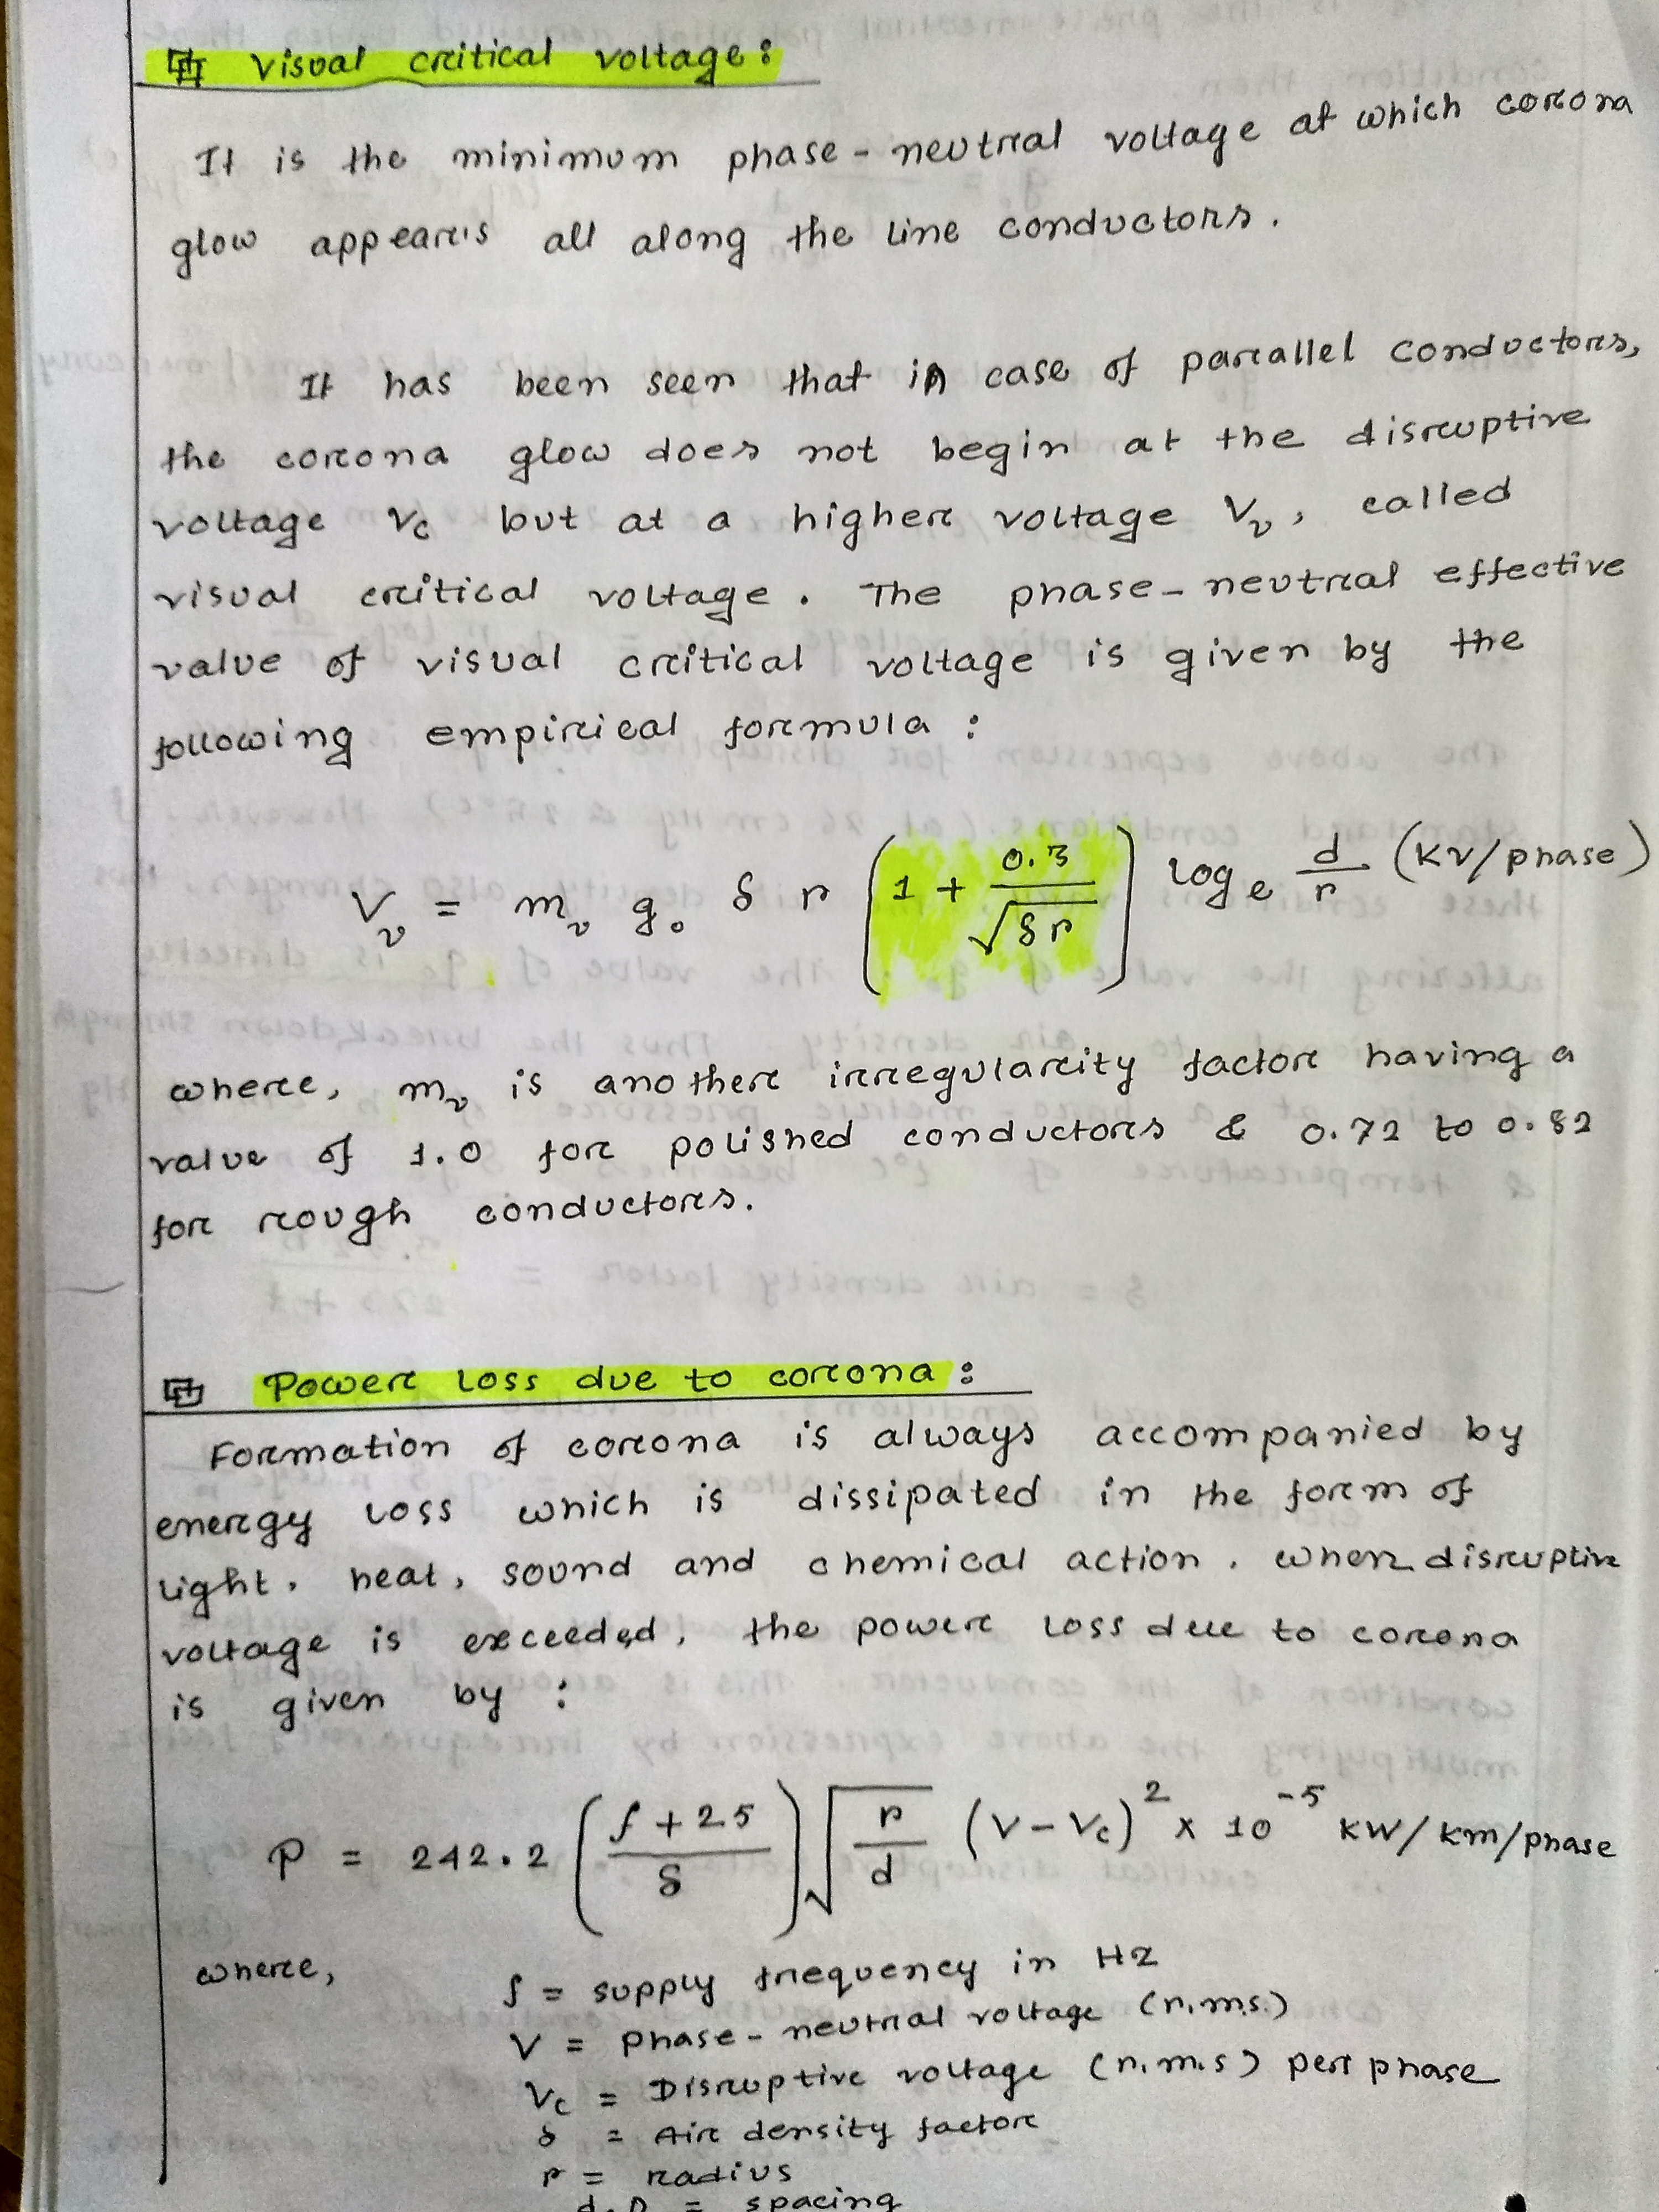 Visual critical voltage:
It is the minimum phase-neutral voltage at which corona
glow appears all along the line conductors.
It has been seen that in case of parallel conductors,
the corona glow does not begin at the disruptive
voltage Vc but at a higher voltage Vv, called
visual critical voltage. The phase-neutral effective
value of visual critical voltage is given by the
following empirical formula:
Vv = mv g₀ δ r (1 + 0.3/√(δr)) logₑ d/r (kv/phase)
where, mv is another irregularity factor having a
value of 1.0 for polished conductors & 0.72 to 0.82
for rough conductors.
Power Loss due to corona:
Formation of corona is always accompanied by
energy loss which is dissipated in the form of
light, heat, sound and chemical action. When disruptive
voltage is exceeded, the power loss due to corona
is given by:
P = 242.2 ((f+25)/δ) √(r/d) (V-Vc)² × 10⁻⁵ kW/km/phase
where,
f = supply frequency in HZ
V = Phase-neutral voltage (r.m.s.)
Vc = Disruptive voltage (r.m.s) per phase
δ = Air density factor
r = radius
d, D = spacing